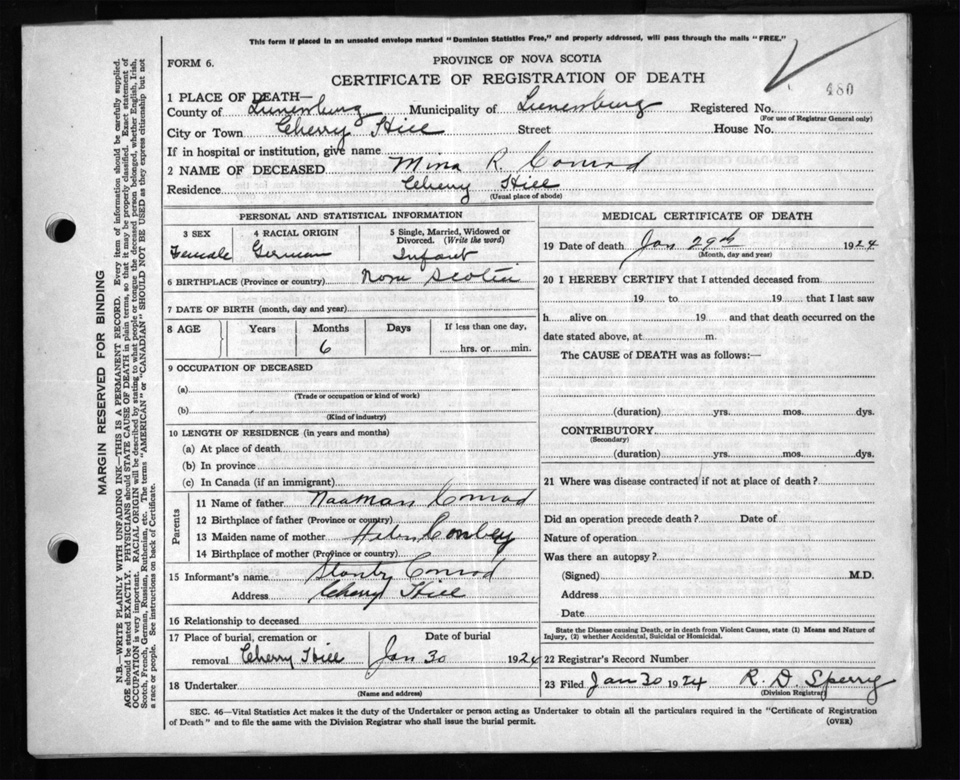 This form if placed in an unsealed envelope marked "Dominion Statistics Free," and properly addressed, will pass through the mails "FREE."
FORM 6.
PROVINCE OF NOVA SCOTIA
CERTIFICATE OF REGISTRATION OF DEATH
480
1 PLACE OF DEATH—
County of Lunenburg Municipality of Lunenburg Registered No.
(For use of Registrar General only)
City or Town Cherry Hill Street House No.
If in hospital or institution, give name
2 NAME OF DECEASED Mina R. Conrad
Residence Cherry Hill
(Usual place of abode)
PERSONAL AND STATISTICAL INFORMATION
3 SEX 4 RACIAL ORIGIN 5 Single, Married, Widowed or Divorced. (Write the word)
Female German Infant
6 BIRTHPLACE (Province or country) Nova Scotia
7 DATE OF BIRTH (month, day and year)
8 AGE Years Months Days If less than one day,
6 hrs. or min.
9 OCCUPATION OF DECEASED
(a)
(Trade or occupation or kind of work)
(b)
(Kind of industry)
10 LENGTH OF RESIDENCE (in years and months)
(a) At place of death
(b) In province
(c) In Canada (if an immigrant)
Parents
11 Name of father Naaman Conrad
12 Birthplace of father (Province or country)
13 Maiden name of mother Helen
14 Birthplace of mother (Province or country)
15 Informant's name Conrad
Address Cherry Hill
16 Relationship to deceased
17 Place of burial, cremation or removal Cherry Hill
Date of burial
Jan 30 1924
18 Undertaker
(Name and address)
MEDICAL CERTIFICATE OF DEATH
19 Date of death Jan 29th 1924
(Month, day and year)
20 I HEREBY CERTIFY that I attended deceased from
19 to 19 that I last saw
h alive on 19 and that death occurred on the
date stated above, at m.
The CAUSE of DEATH was as follows:—
(duration) yrs. mos. dys.
CONTRIBUTORY
(Secondary)
(duration) yrs. mos. dys.
21 Where was disease contracted if not at place of death?
Did an operation precede death? Date of
Nature of operation
Was there an autopsy?
(Signed) M.D.
Address
Date
State the Disease causing Death, or in death from Violent Causes, state (1) Means and Nature of
Injury, (2) whether Accidental, Suicidal or Homicidal.
22 Registrar's Record Number
23 Filed Jan 30 1924 R. D. Sperry
(Division Registrar)
SEC. 46—Vital Statistics Act makes it the duty of the Undertaker or person acting as Undertaker to obtain all the particulars required in the "Certificate of Registration
of Death" and to file the same with the Division Registrar who shall issue the burial permit.
(OVER)
MARGIN RESERVED FOR BINDING
N.B.—WRITE PLAINLY WITH UNFADING INK—THIS IS A PERMANENT RECORD. Every item of information should be carefully supplied.
AGE should be stated EXACTLY. PHYSICIANS should STATE CAUSE OF DEATH in plain terms, so that it may be properly classified. Exact statement of
OCCUPATION is very important. RACIAL ORIGIN will be described by stating to what people or tongue the deceased person belonged, whether English, Irish,
Scotch, French, German, Russian, Ruthenian, etc. The terms "AMERICAN" or "CANADIAN" SHOULD NOT BE USED as they express citizenship but not
a race or people. See instructions on back of Certificate.